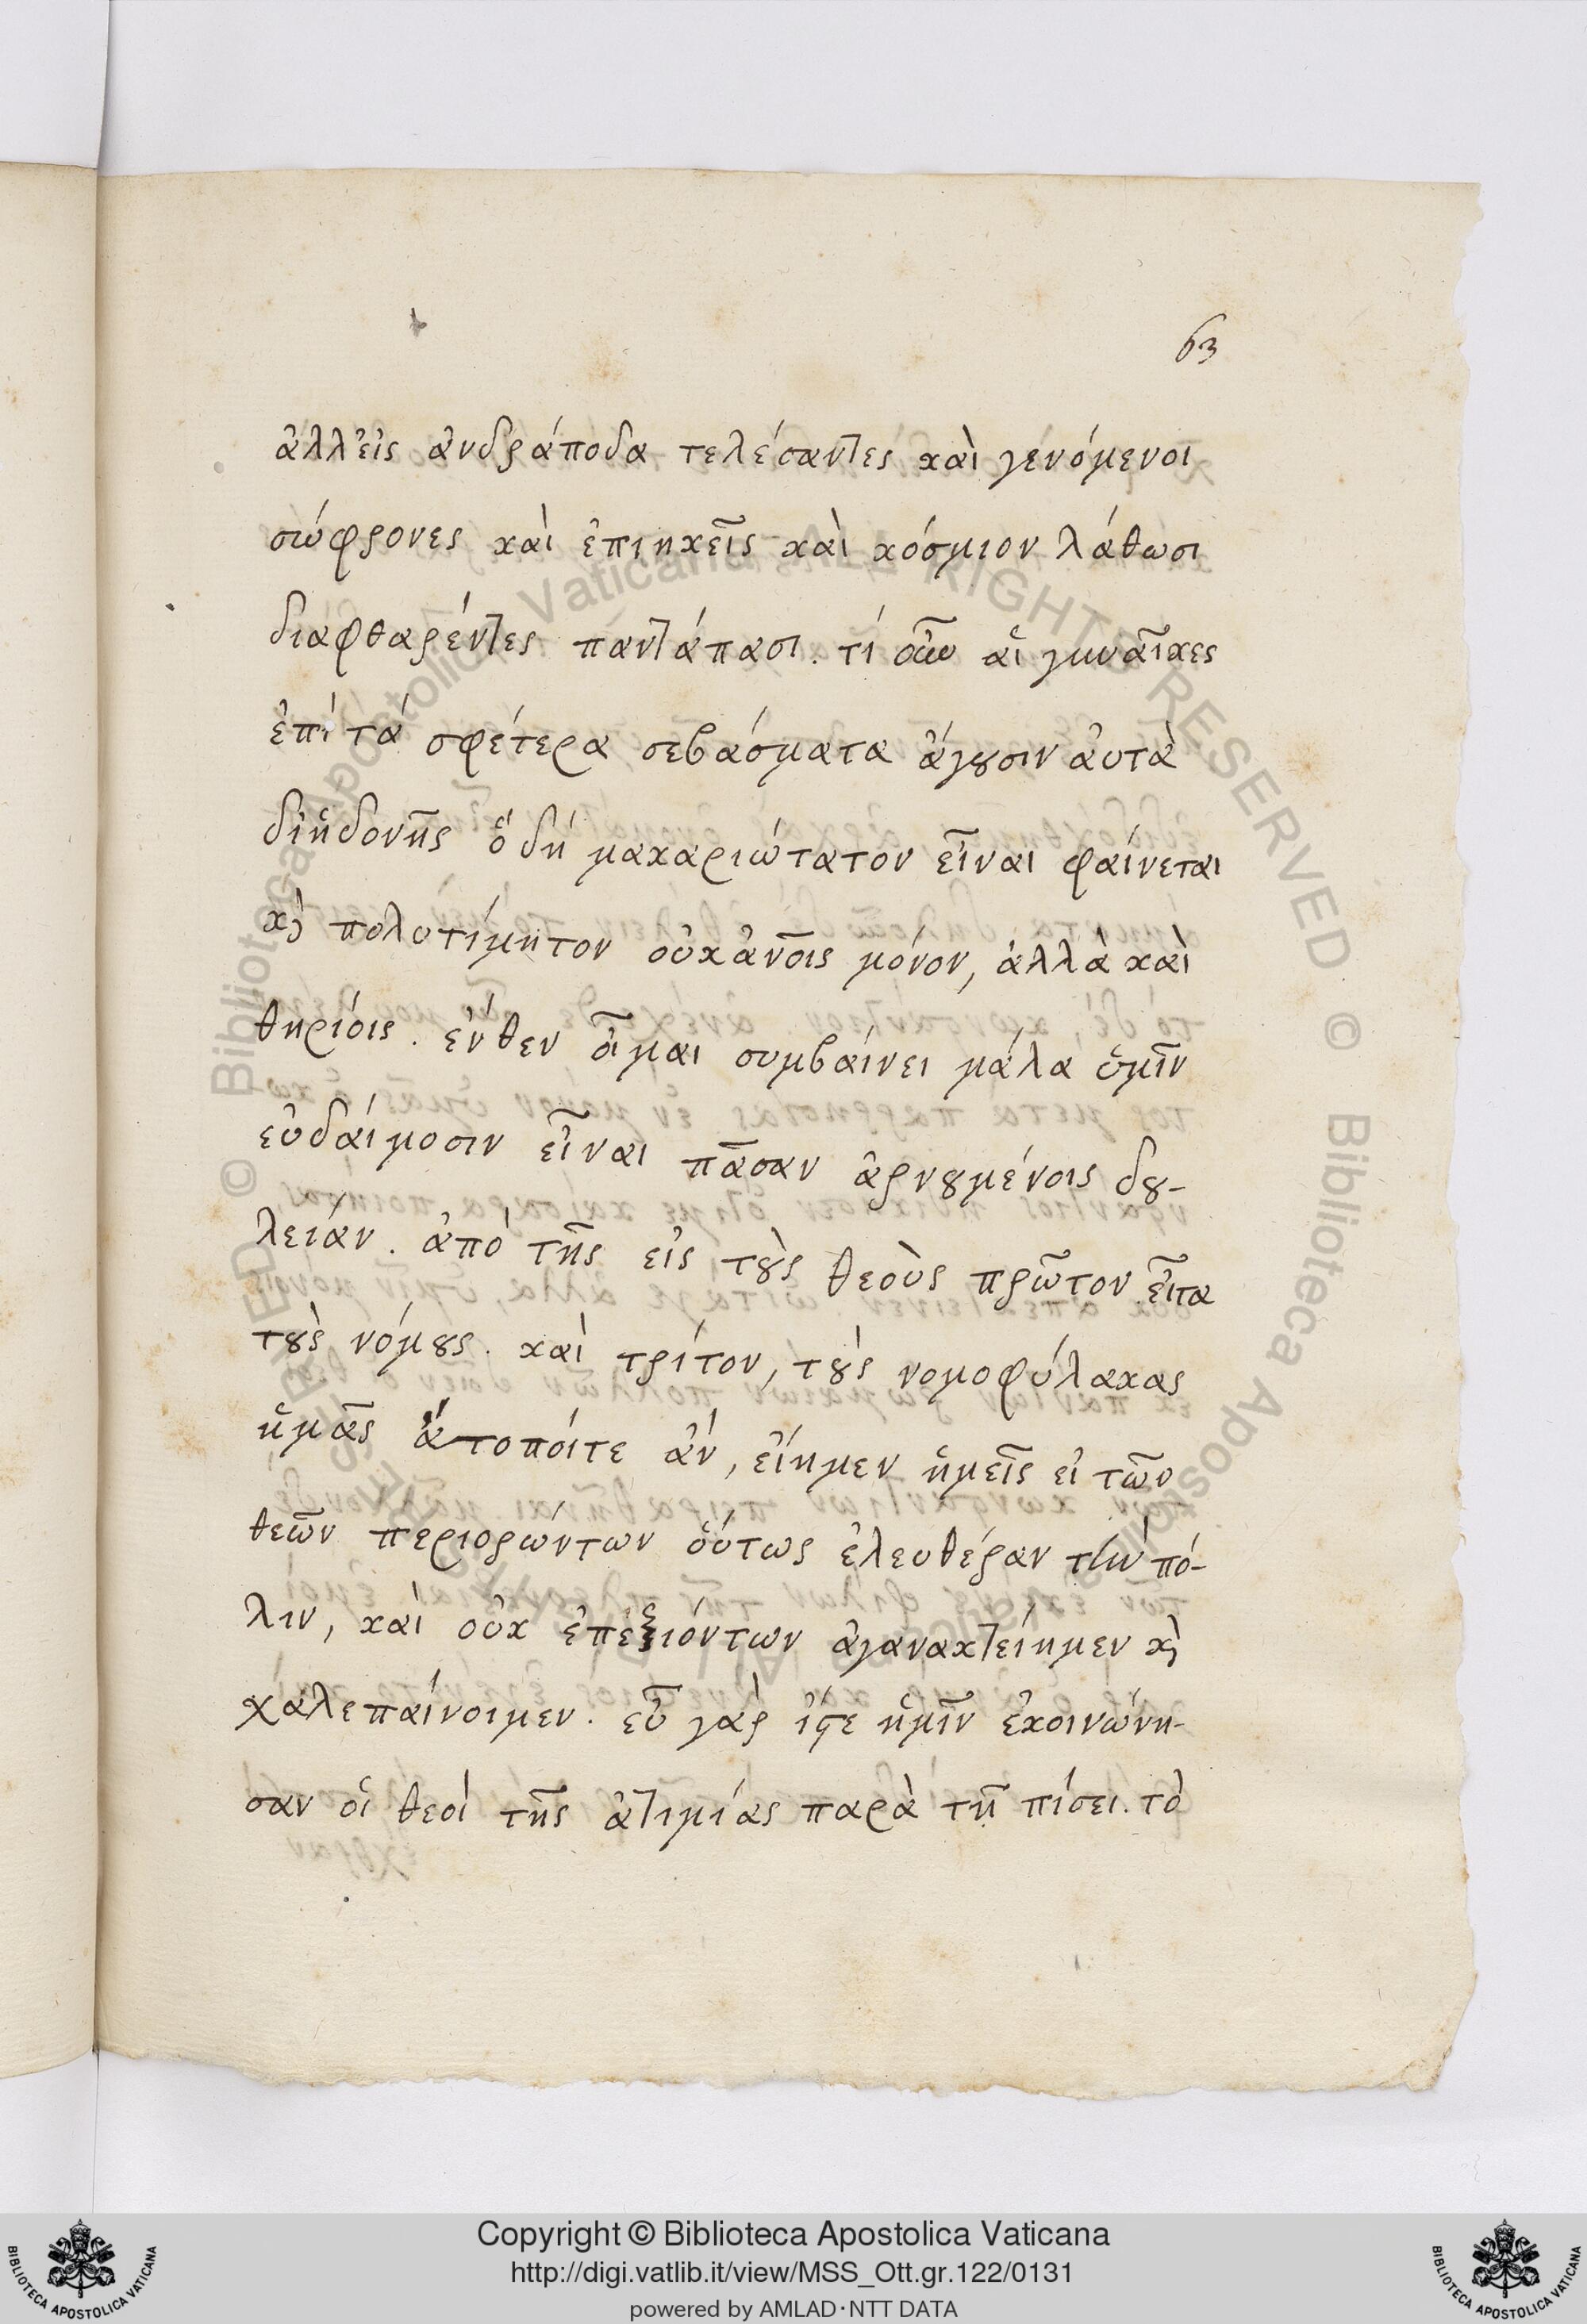 63
ἀλλ' εἰς ἀνδράποδα τελέσαντες καὶ γενόμενοι
σώφρονες καὶ ἐπιηκεῖς καὶ κόσμιον λάθωσι
διαφθαρέντες παντάπασι. τί οὖν αἱ γυναῖκες
ἐπὶ τὰ σφέτερα σεβάσματα ἄγουσιν αὐτὰ
δι' ἡδονῆς ὃ δή μακαριώτατον εἶναι φαίνεται
κỳ πολυτίμητον οὐκ ἀνοῖς μόνον, ἀλλὰ καὶ
θηρίοις. ἐνθεν οἶμαι συμβαίνει μάλα ὑμῖν
εὐδαίμοσιν εἶναι πᾶσαν ἀρνουμένοις δου-
λείαν. ἀπὸ τῆς εἰς τοὺς θεοὺς πρῶτον εἶτα
τοὺς νόμους. καὶ τρίτον, τοὺς νομοφύλακας
ἡμᾶς ἄτοποί τε ἀν, εἴημεν ἡμεῖς εἰ τῶν
θεῶν περιορώντων οὕτως ἐλευθέραν τὴν πό-
λιν, καὶ οὐκ ἐπεξιόντων ἀγανακτείημεν κỳ
χαλεπαίνοιμεν. εὖ γάρ ἴστε ἡμῖν ἐκοινώνη-
σαν οἱ θεοὶ τῆς ἀτιμίας παρὰ τῇ πόσει. τὸ
Copyright © Biblioteca Apostolica Vaticana
http://digi.vatlib.it/view/MSS_Ott.gr.122/0131
powered by AMLAD·NTT DATA
BIBLIOTECA APOSTOLICA VATICANA
BIBLIOTECA APOSTOLICA VATICANA